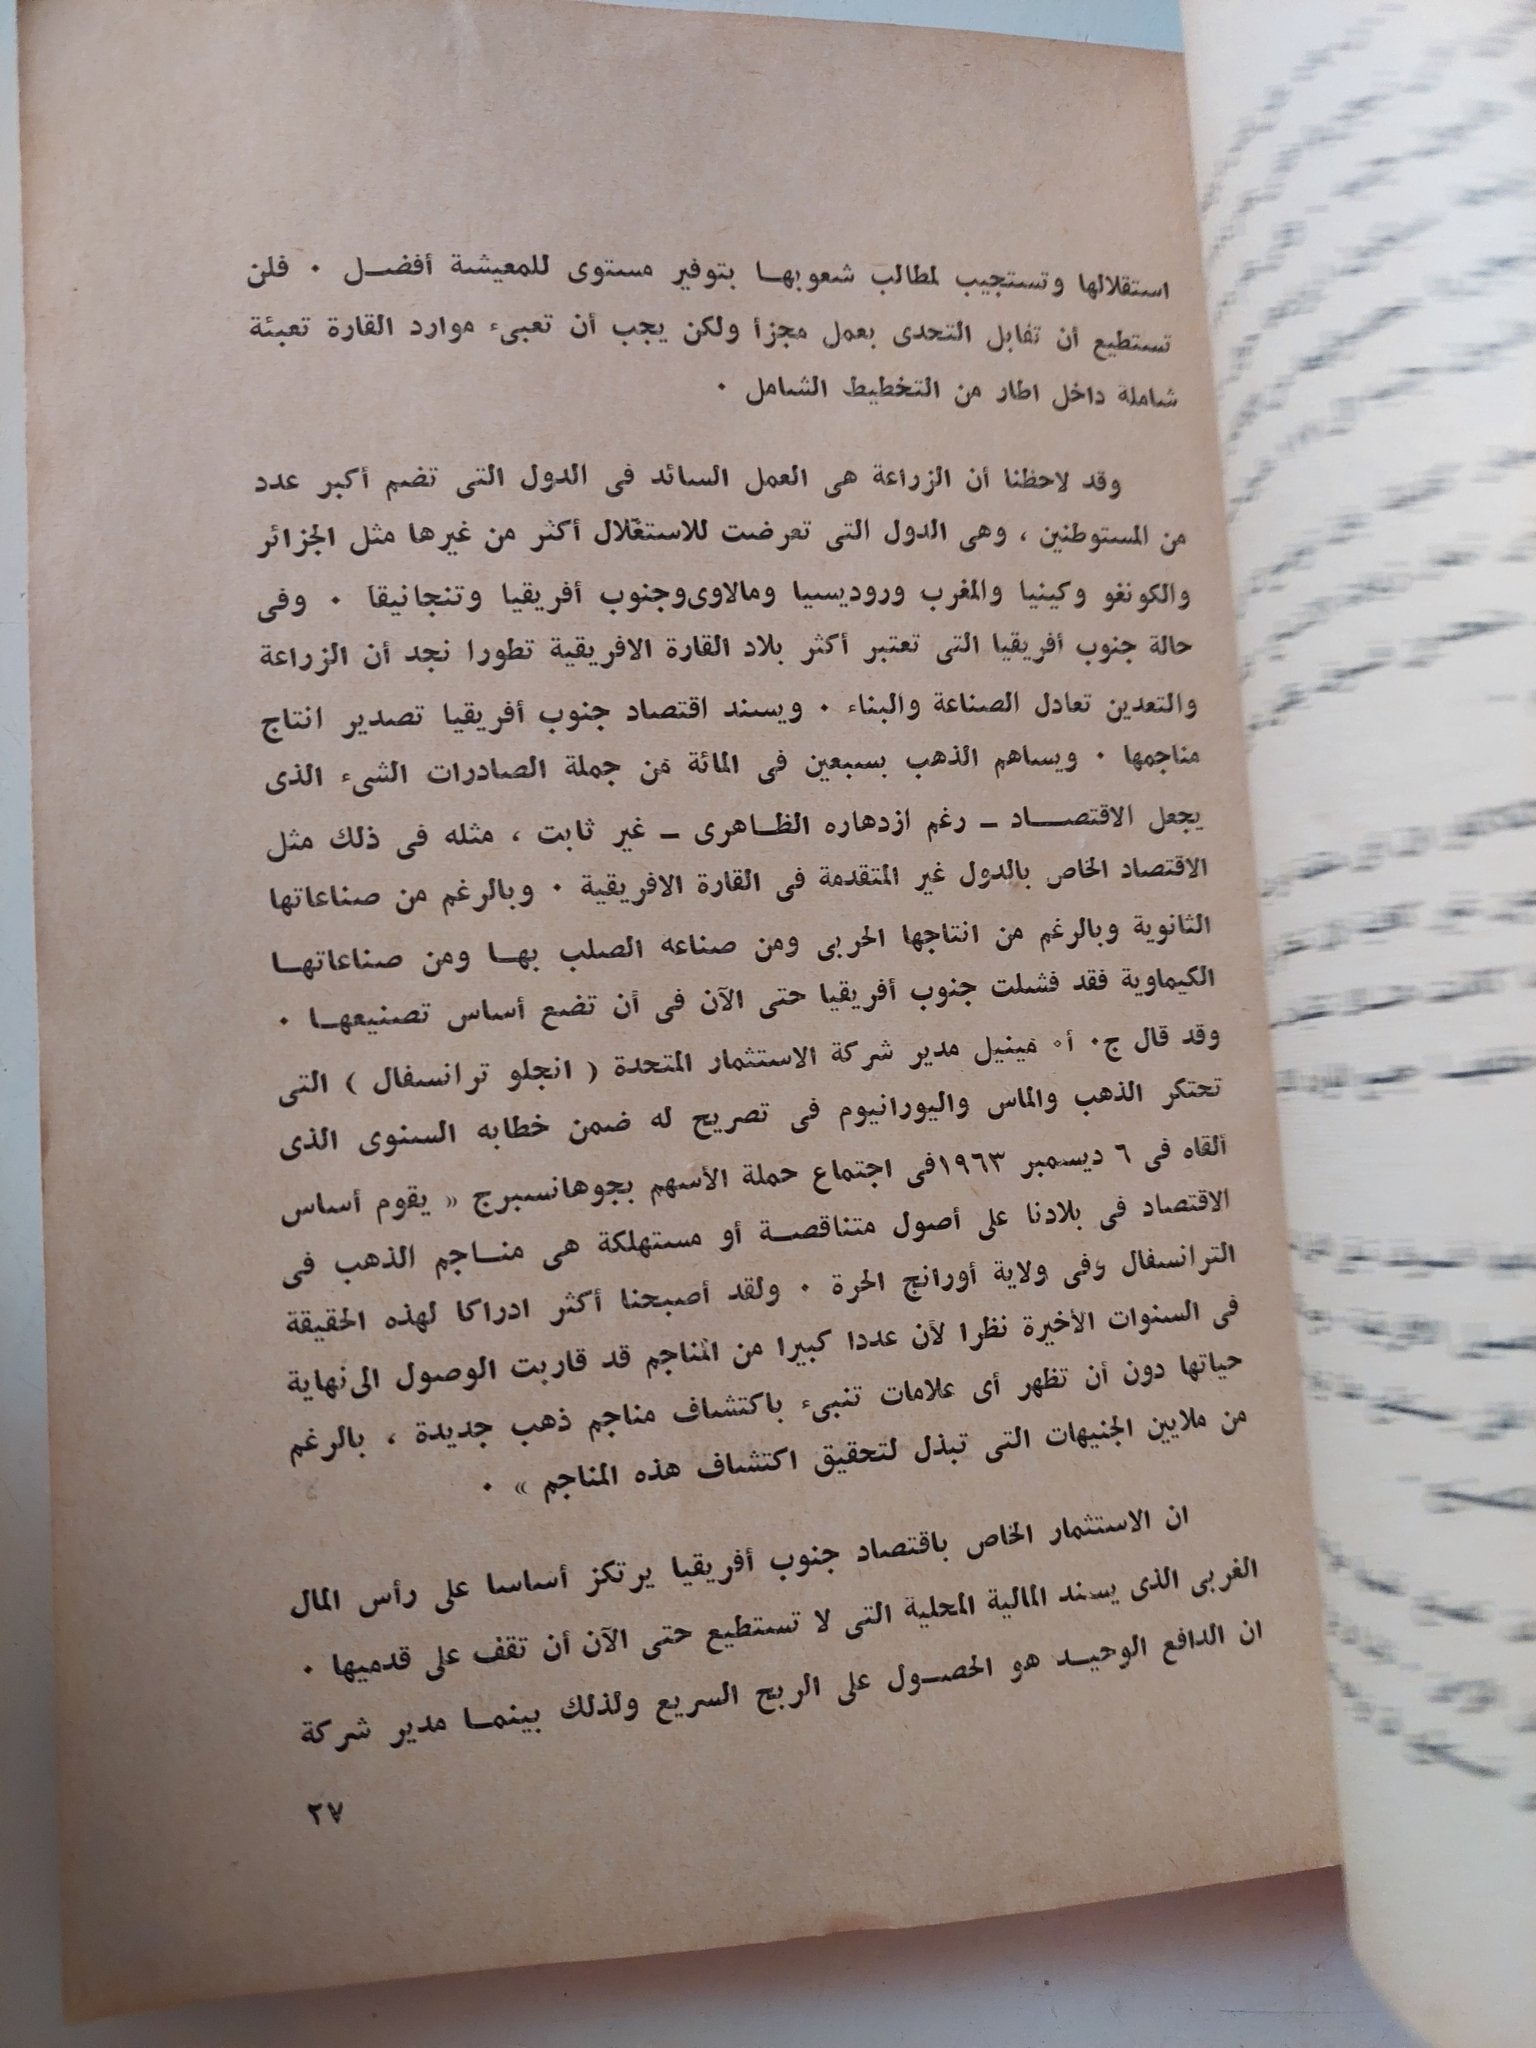 استقلالها وتستجيب لمطالب شعوبها بتوفير مستوى للمعيشة أفضل . فلن
تستطيع أن تقابل التحدى بعمل مجزأ ولكن يجب أن تعبىء موارد القارة تعبئة
شاملة داخل اطار من التخطيط الشامل .
وقد لاحظنا أن الزراعة هى العمل السائد فى الدول التى تضم أكبر عدد
من المستوطنين ، وهى الدول التى تعرضت للاستغلال أكثر من غيرها مثل الجزائر
والكونغو وكينيا والمغرب وروديسيا ومالاوى وجنوب أفريقيا وتنجانيقا . وفى
حالة جنوب أفريقيا التى تعتبر أكثر بلاد القارة الافريقية تطورا نجد أن الزراعة
والتعدين تعادل الصناعة والبناء . ويسند اقتصاد جنوب أفريقيا تصدير انتاج
مناجمها . ويساهم الذهب بسبعين فى المائة من جملة الصادرات الشىء الذى
يجعل الاقتصاد – رغم ازدهاره الظاهرى – غير ثابت ، مثله فى ذلك مثل
الاقتصاد الخاص بالدول غير المتقدمة فى القارة الافريقية . وبالرغم من صناعاتها
الثانوية وبالرغم من انتاجها الحربى ومن صناعه الصلب بها ومن صناعاتها
الكيماوية فقد فشلت جنوب أفريقيا حتى الآن فى أن تضع أساس تصنيعها .
وقد قال ج. أ. مينيل مدير شركة الاستثمار المتحدة ( انجلو ترانسفال ) التى
تحتكر الذهب والماس واليورانيوم فى تصريح له ضمن خطابه السنوى الذى
ألقاه فى ٦ ديسمبر ١٩٦٣ فى اجتماع حملة الأسهم بجوهانسبرج « يقوم أساس
الاقتصاد فى بلادنا على أصول متناقصة أو مستهلكة هى مناجم الذهب فى
الترانسفال وفى ولاية أورانج الحرة . ولقد أصبحنا أكثر ادراكا لهذه الحقيقة
فى السنوات الأخيرة نظرا لأن عددا كبيرا من المناجم قد قاربت الوصول الى نهاية
حياتها دون أن تظهر أى علامات تنبىء باكتشاف مناجم ذهب جديدة ، بالرغم
من ملايين الجنيهات التى تبذل لتحقيق اكتشاف هذه المناجم » .
ان الاستثمار الخاص باقتصاد جنوب أفريقيا يرتكز أساسا على رأس المال
الغربى الذى يسند المالية المحلية التى لا تستطيع حتى الآن أن تقف على قدميها .
ان الدافع الوحيد هو الحصول على الربح السريع ولذلك بينما مدير شركة
٢٧